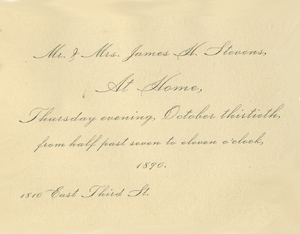 Mr. & Mrs. James H. Stevens,
At Home,
Thursday evening, October thirtieth,
from half past seven to eleven o'clock,
1890.
1810 East Third St.